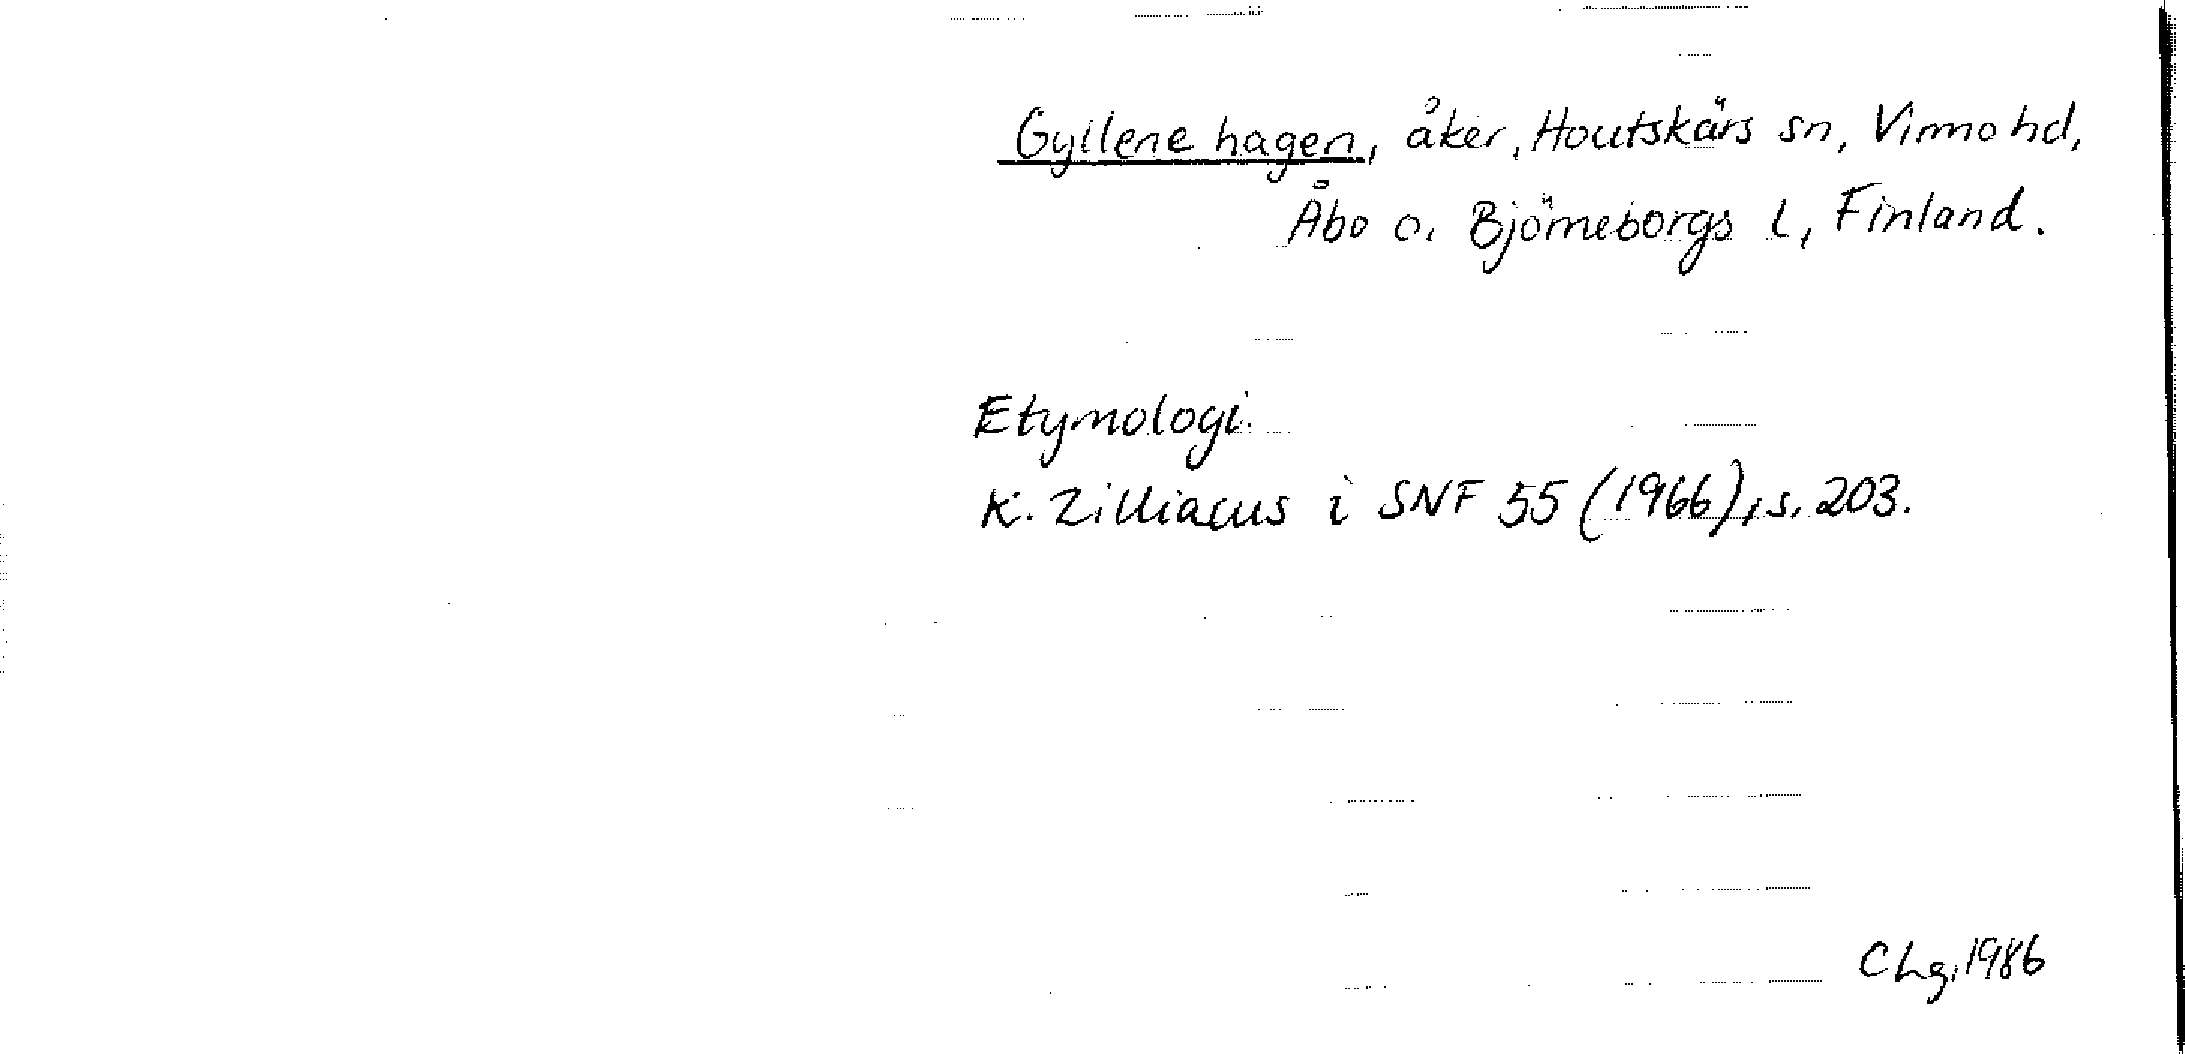 Gyllene hagen, åker, Houtskärs sn, Virmo hd,
Åbo o. Björneborgs l, Finland.
Etymologi.
K. Zilliacus i SNF 55 (1966), s. 203.
CLg, 1986